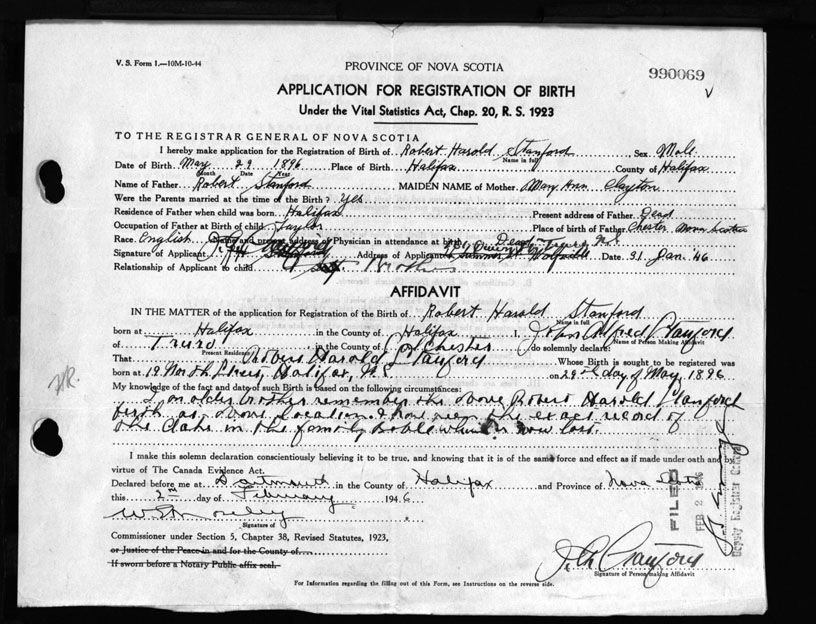 V. S. Form 1.—10M-10-44
PROVINCE OF NOVA SCOTIA
990069
APPLICATION FOR REGISTRATION OF BIRTH
Under the Vital Statistics Act, Chap. 20, R. S. 1923
TO THE REGISTRAR GENERAL OF NOVA SCOTIA
I hereby make application for the Registration of Birth of Robert Harold Stanford Sex Male
Name in full
Date of Birth May 29 1896 Place of Birth Halifax County of Halifax
Month Date Year
Name of Father Robert Stanford MAIDEN NAME of Mother Mary Ann Clayton
Were the Parents married at the time of the Birth? Yes
Residence of Father when child was born Halifax Present address of Father Dead
Occupation of Father at Birth of child Taylor Place of birth of Father Chester Nova Scotia
Race English Name and present address of Physician in attendance at birth Dead
Signature of Applicant Address of Applicant Date 31 Jan. '46
Relationship of Applicant to child Brother
AFFIDAVIT
IN THE MATTER of the application for Registration of the Birth of Robert Harold Stanford
born at Halifax in the County of Halifax I, John Alfred Stanford
Name of Person Making Affidavit
of Truro in the County of Colchester do solemnly declare:
Present Residence
That Robert Harold Stanford Whose Birth is sought to be registered was
born at 19 North Street, Halifax, N.S. on 29th day of May, 1896
My knowledge of the fact and date of such Birth is based on the following circumstances:
I, an older brother remember the above Robert Harold Stanford
birth at above location & have seen the exact record of
the date in the family bible which is now lost.
I make this solemn declaration conscientiously believing it to be true, and knowing that it is of the same force and effect as if made under oath and by
virtue of The Canada Evidence Act.
Declared before me at Dartmouth in the County of Halifax and Province of Nova Scotia
this 2nd day of February 1946
Signature of
Commissioner under Section 5, Chapter 38, Revised Statutes, 1923,
or Justice of the Peace in and for the County of
If sworn before a Notary Public affix seal.
J. A. Stanford
Signature of Person making Affidavit
For Information regarding the filling out of this Form, see Instructions on the reverse side.
FILED
FEB 2 1946
Deputy Registrar General